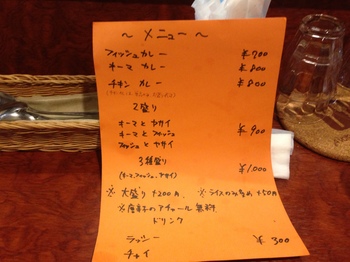 ～ メニュー ～
フィッシュカレー ¥700
キーマ カレー ¥800
チキン カレー ¥800
2盛り
キーマ と ヤサイ
キーマ と フィッシュ ¥900
フィッシュ と ヤサイ
3種盛り ¥1000
(キーマ,フィッシュ,ヤサイ)
※大盛り +200円 ※ライスのみ多め +50円
※ のアチャール 無料
ドリンク
ラッシー ¥300
チャイ